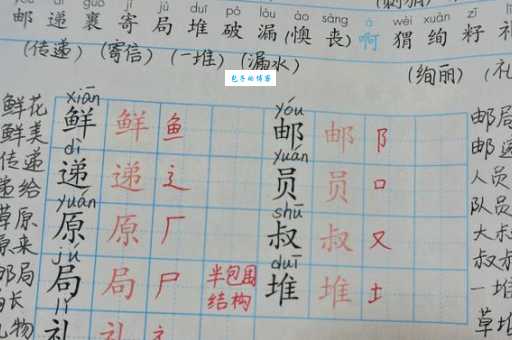 yóu dì guǒ jì jú duī pò lòu ào sàng á wèi xuàn zǐ
邮 递 裹 寄 局 堆 破 漏(懊 丧)啊 猬 绚 籽 礼
(传递) (寄信) (一堆) (漏水) (绚丽) (礼
包子的博客
xiān yóu
鲜花 鲜 鲜 鱼 邮 邮 阝 邮局
鲜美
dì yuán
传递 递 递 辶 员 员 口 邮递
递给 人员
yuán shū
草原 原 原 厂 叔 叔 又 队员
原来 大叔
jú duī
邮局 局 局 尸 半包围结构 堆 堆 土 叔叔
一堆
lǐ
礼物 礼 礼 礻 草堆